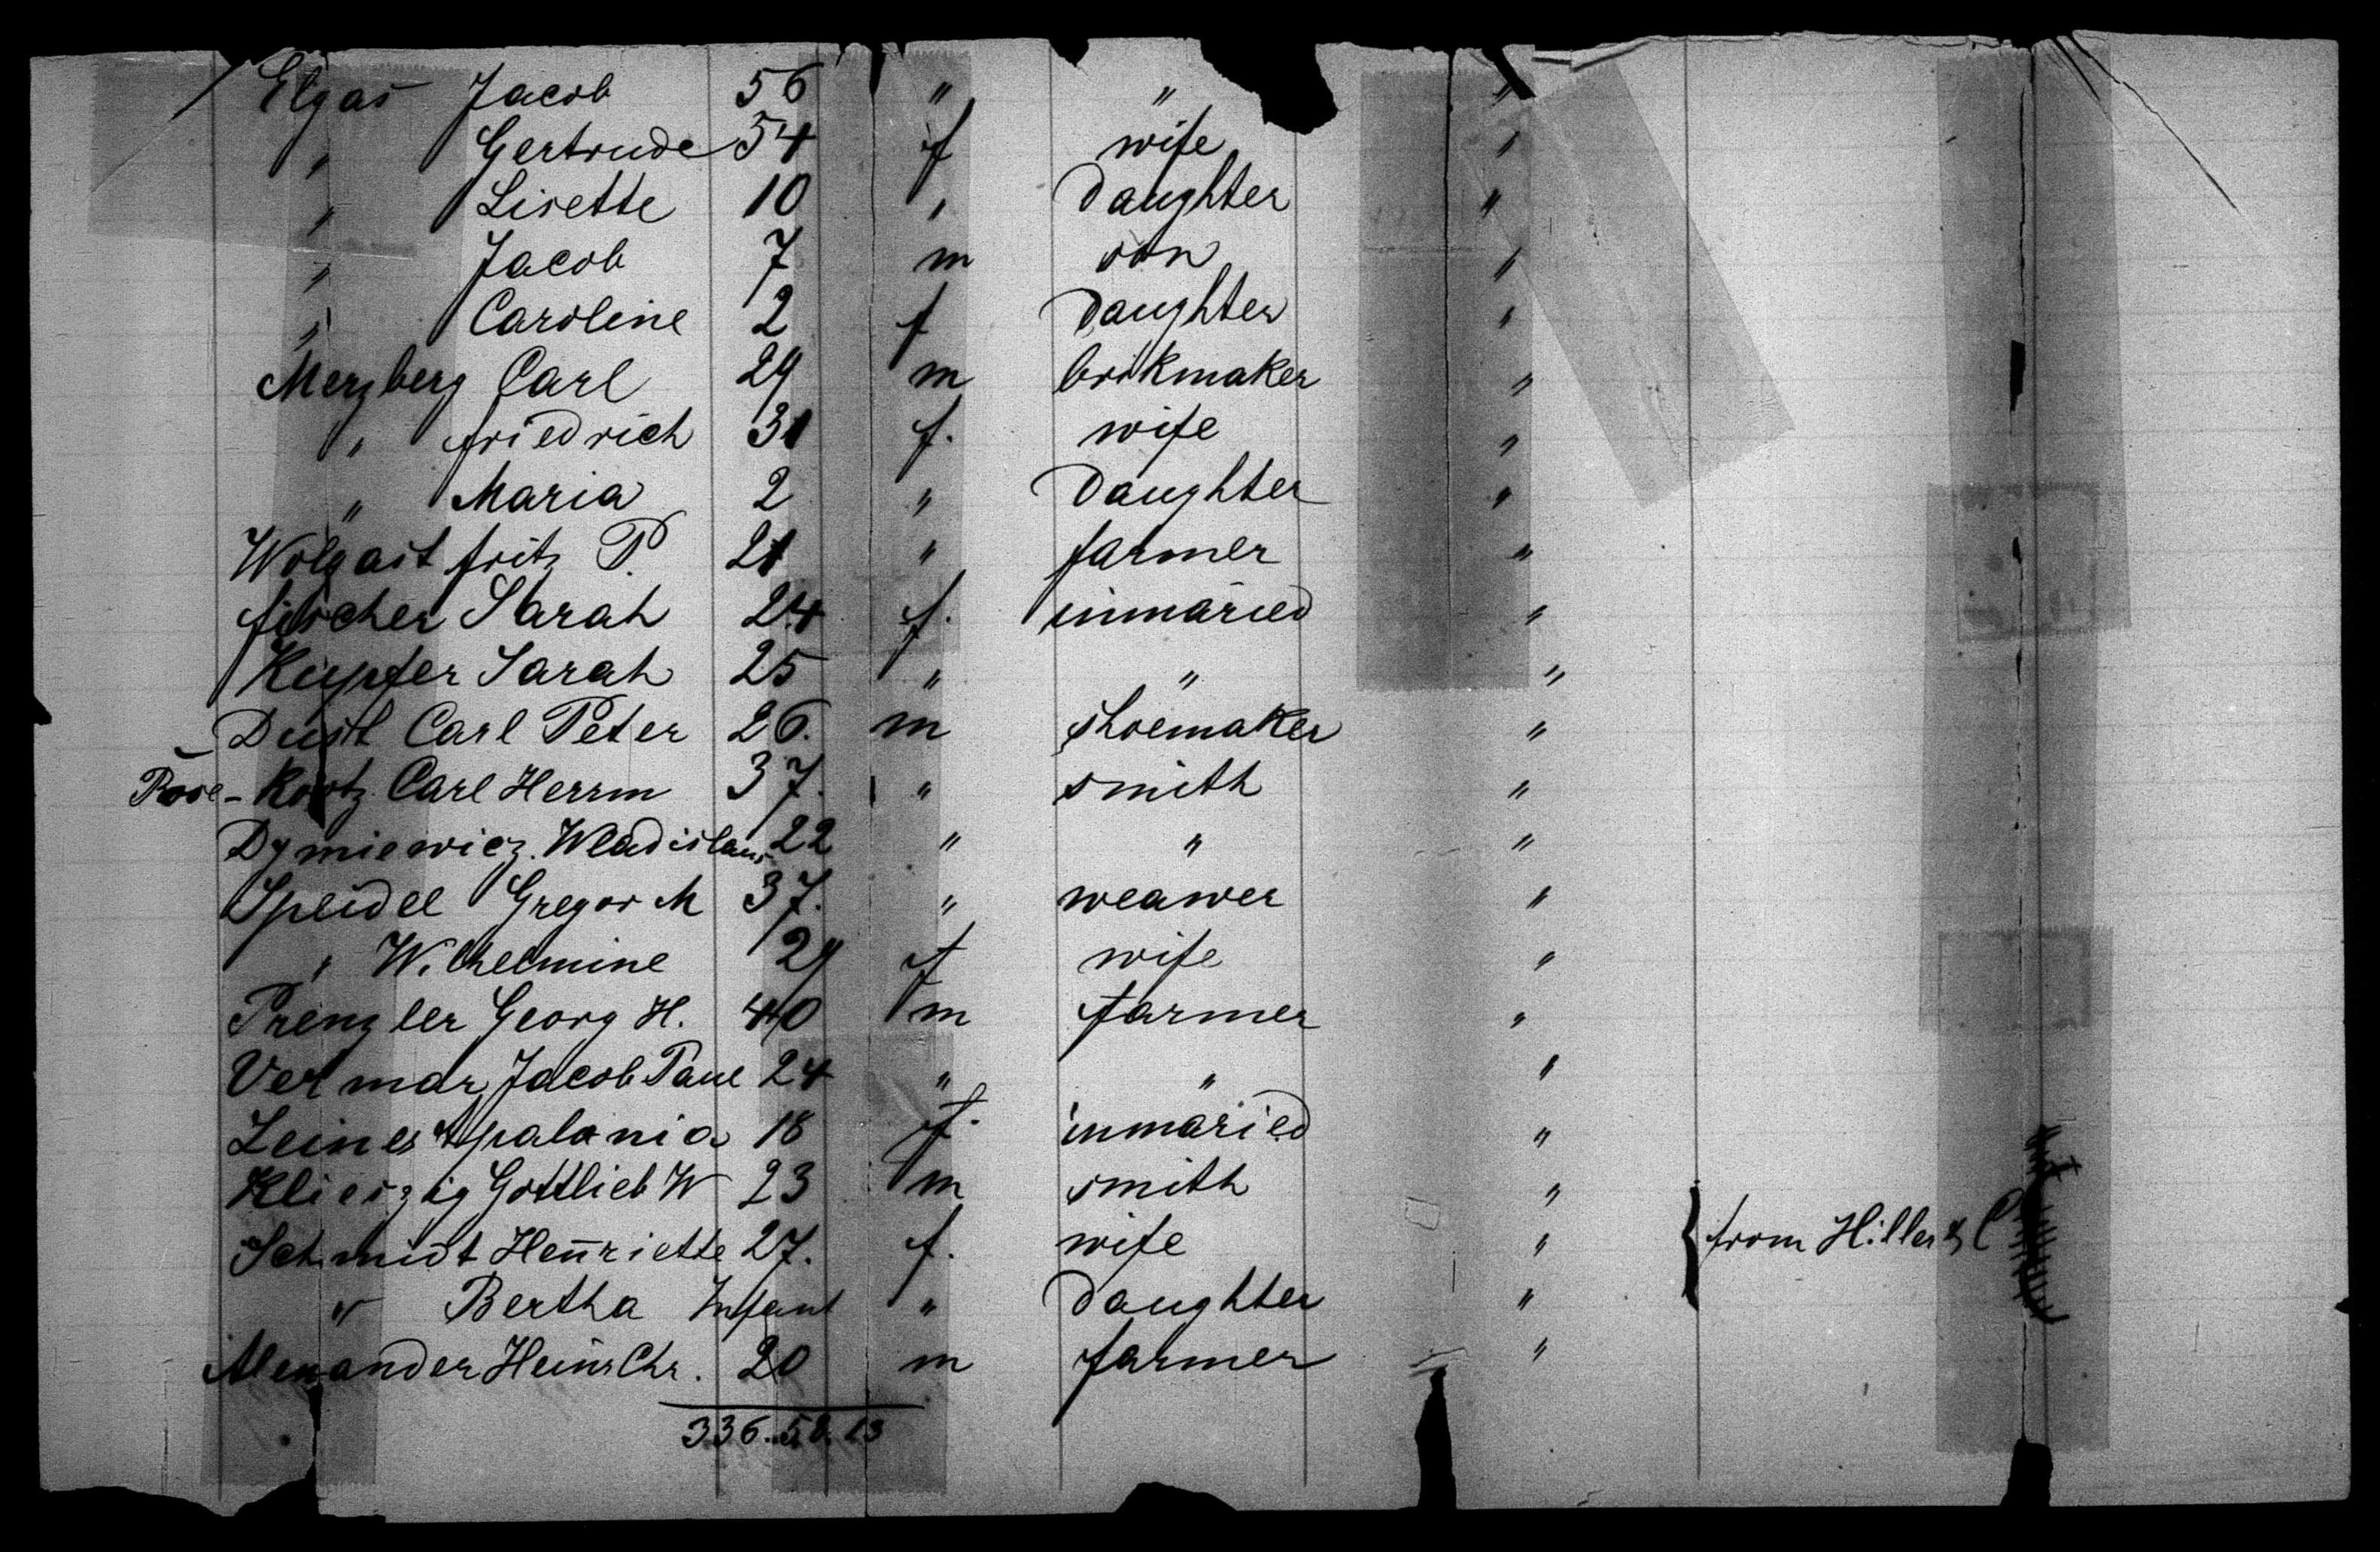 Elgas Jacob 56 " " "
" Gertrude 54 f wife "
" Lisette 10 " Daughter "
" Jacob 7 m son "
" Caroline 2 f Daughter "
Merzberg Carl 29 m brikmaker "
" friedrich 31 f. wife "
" Maria 2 " Daughter "
Wolgast fritz P. 21 " farmer "
fischer Sarah 24 f. inmaried "
Kupfer Sarah 25 " " "
Dustl Carl Peter 26. m shoemaker "
Rose- Kootz Carl Herrm 37. " smith "
Dymiewicz. Wladislaus 22 " " "
Speidel Gregor M 37. " weawer "
" Wilhelmine 29 f wife "
Prenzler Georg H. 40 m farmer "
Vermar Jacob Paul 24 " " "
Leines Apalonia 18 f. inmaried "
Klieszig Gottlieb W 23 m smith "
Schmidt Henriette 27. f. wife " from Hiller & C
" Bertha Infant " Daughter "
Alexander Heinr Chr. 20 m farmer "
336. 58. 13